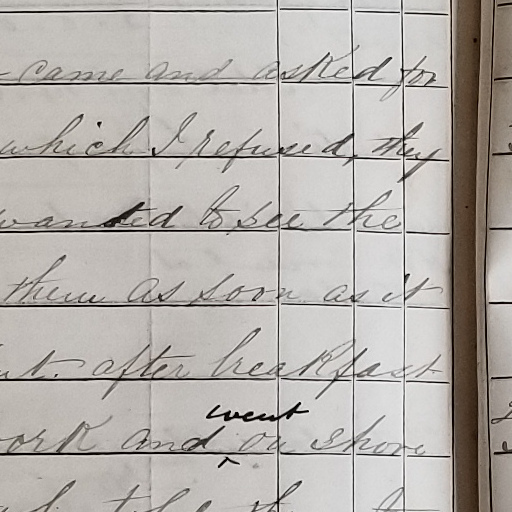 came and asked for
which I refused, they
wanted to see the
them as soon as it
after breakfast
went
and on shore